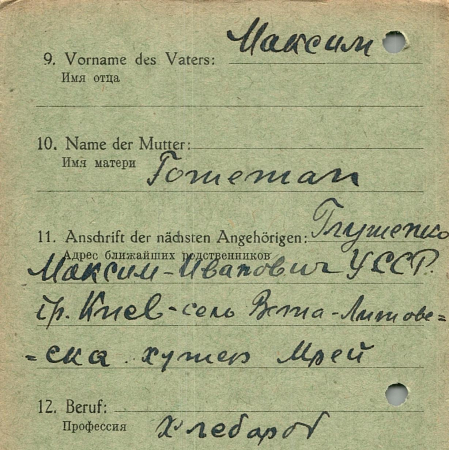 9. Vorname des Vaters: Максим
Имя отца
10. Name der Mutter:
Имя матери
11. Anschrift der nächsten Angehörigen: Глущенко
Адрес ближайших родственников
Максим-Иванович УССР.
гр. Киев-село Вита-Литове=
=ска. хутер Мрей
12. Beruf:
Профессия Хлебароб